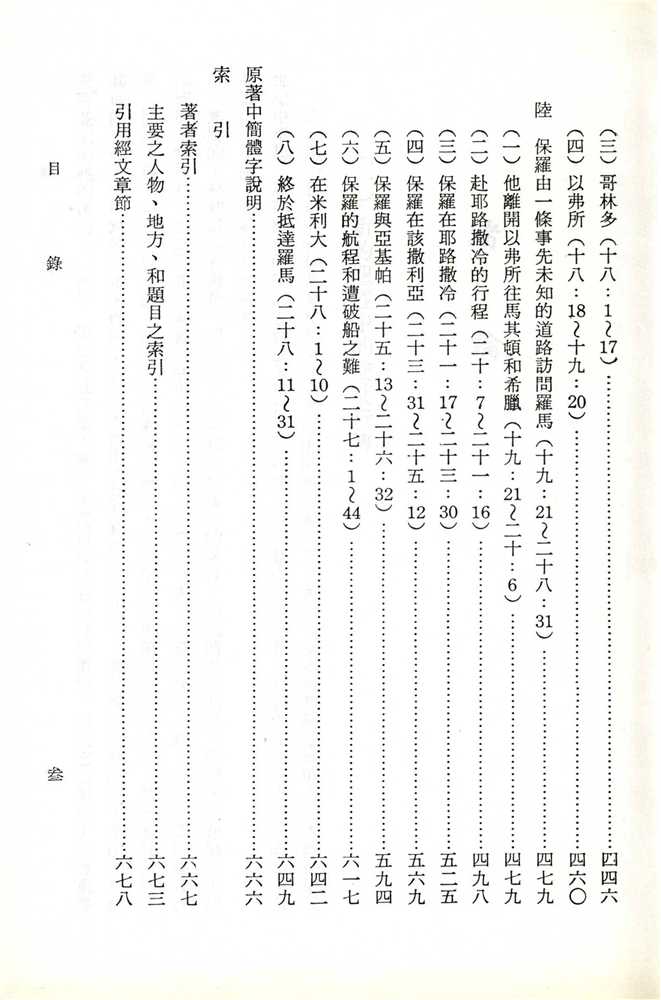 (三)哥林多(十八:1~17)……四四六
(四)以弗所(十八:18~十九:20)……四六〇
陸 保羅由一條事先未知的道路訪問羅馬(十九:21~二十八:31)……四七九
(一)他離開以弗所往馬其頓和希臘(十九:21~二十:6)……四七九
(二)赴耶路撒冷的行程(二十:7~二十一:16)……四九八
(三)保羅在耶路撒冷(二十一:17~二十三:30)……五二五
(四)保羅在該撒利亞(二十三:31~二十五:12)……五六九
(五)保羅與亞基帕(二十五:13~二十六:32)……五九四
(六)保羅的航程和遭破船之難(二十七:1~44)……六一七
(七)在米利大(二十八:1~10)……六四二
(八)終於抵達羅馬(二十八:11~31)……六四九
原著中簡體字說明……六六六
索 引
著者索引……六六七
主要之人物、地方、和題目之索引……六七三
引用經文章節……六七八
目 錄 叁